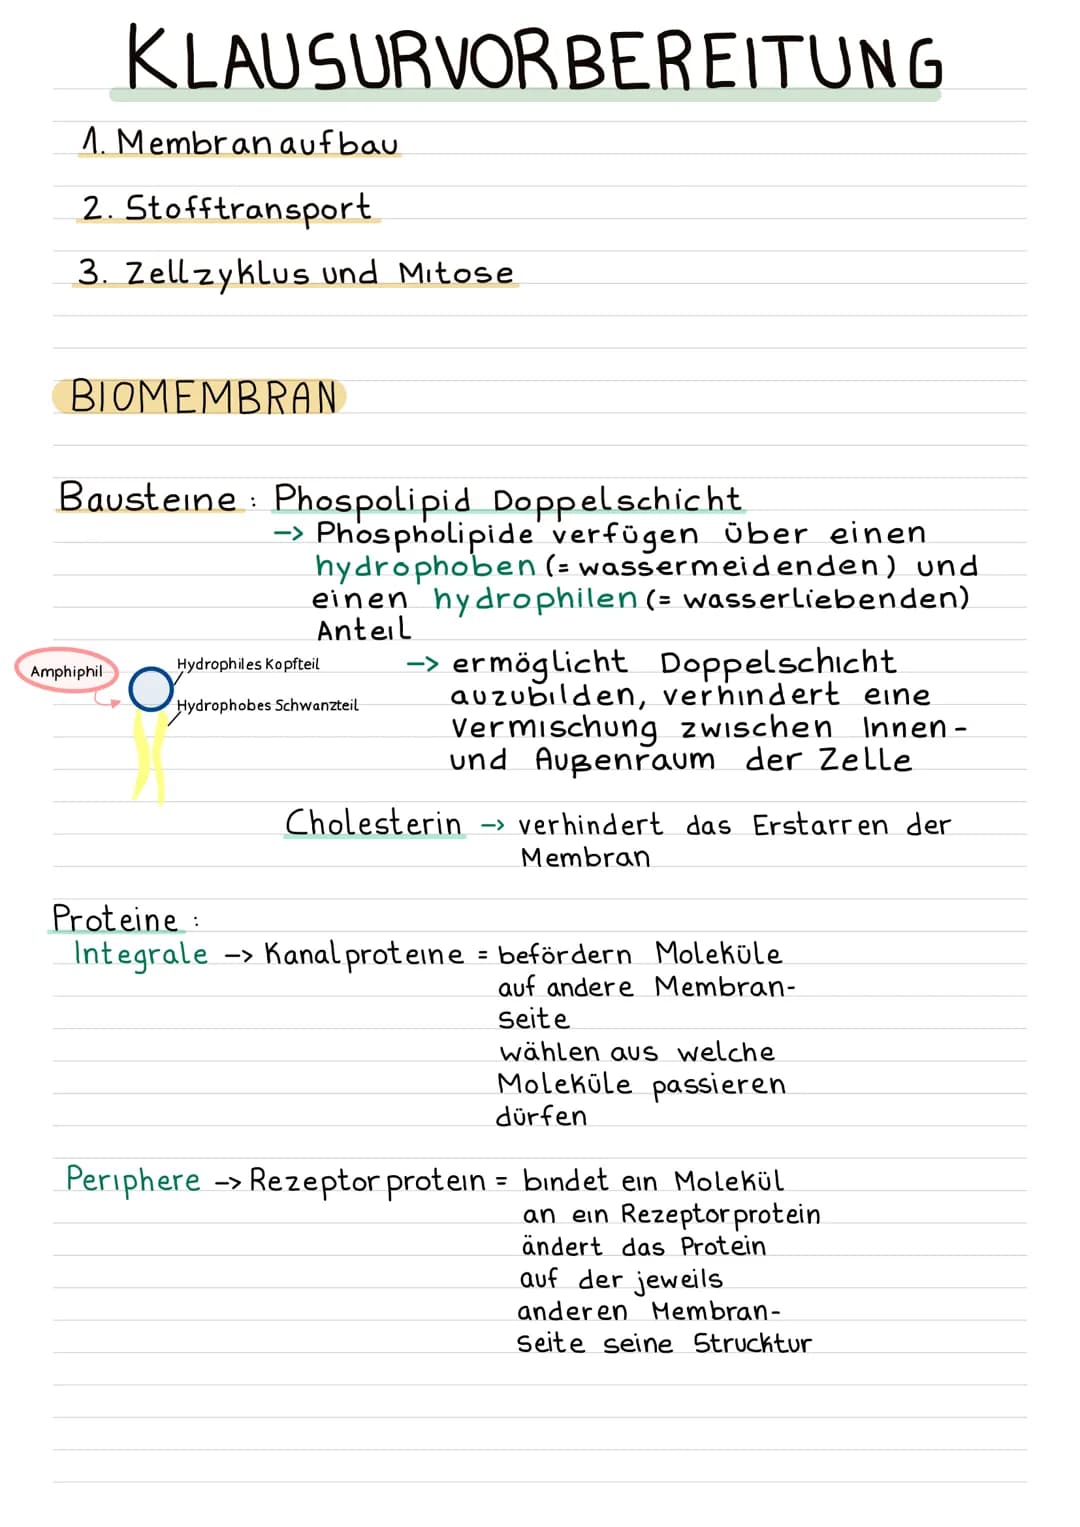 KLAUSURVORBEREITUNG
1. Membranaufbau
2. Stofftransport
3. Zellzyklus und Mitose
BIOMEMBRAN
Bausteine : Phospolipid Doppelschicht
-> Phospholipide verfügen über einen
hydrophoben (= wassermeidenden) und
einen hydrophilen (= wasserliebenden)
Anteil
Amphiphil
Hydrophiles Kopfteil
Hydrophobes Schwanzteil
-> ermöglicht Doppelschicht
auzubilden, verhindert eine
Vermischung zwischen Innen-
und Außenraum der Zelle
Cholesterin -> verhindert das Erstarren der
Membran
Proteine :
Integrale -> Kanalproteine = befördern Moleküle
auf andere Membran-
seite
wählen aus welche
Moleküle passieren
dürfen
Periphere -> Rezeptorprotein = bindet ein Molekül
an ein Rezeptorprotein
ändert das Protein
auf der jeweils
anderen Membran-
seite seine Strucktur